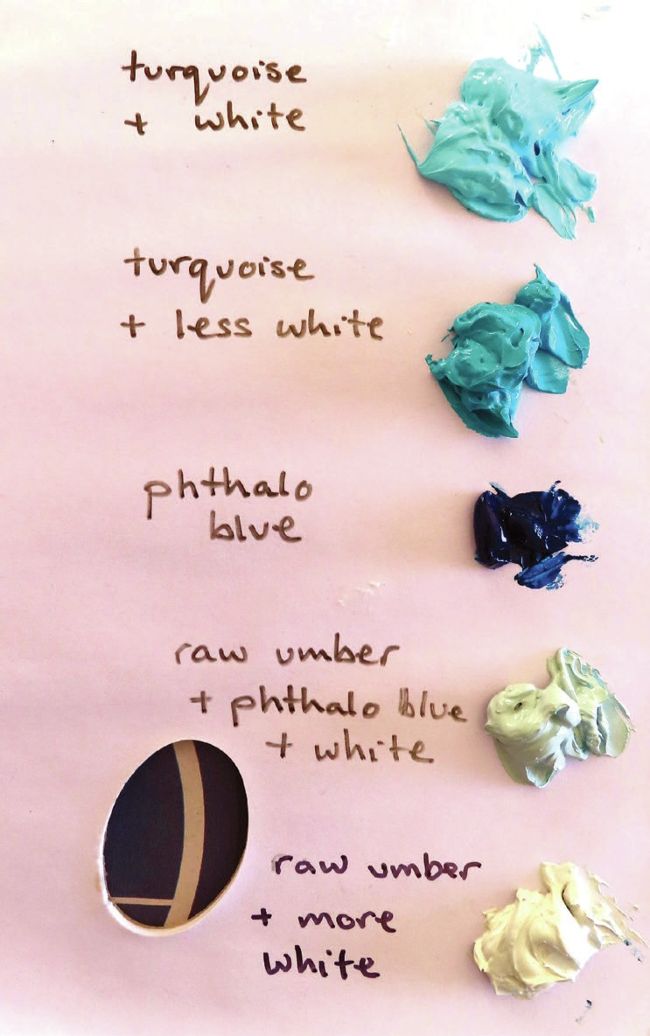 turquoise
+ white
turquoise
+ less white
phthalo
blue
raw umber
+ phthalo blue
+ white
raw umber
+ more
white